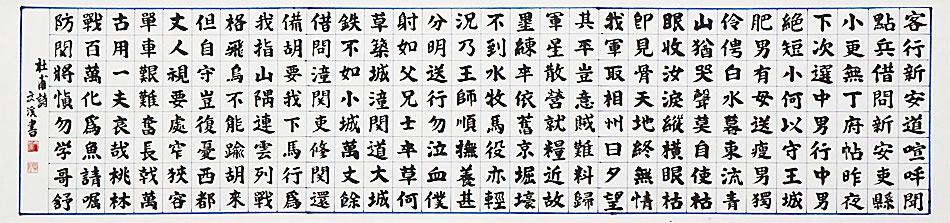 客行新安道喧呼聞
點兵借問新安吏縣
小更無丁府帖昨夜
下次選中男行中男
絕短小何以守王城
肥男有母送瘦男獨
伶俜白水暮東流青
山猶哭聲莫自使枯
眼收汝淚縱橫眼枯
即見骨天地終無情
我軍取相州日夕望
其平豈意賊難料歸
軍星散營就糧近故
壘練卒依舊京堀壕
不到水牧馬役亦輕
況乃王師順撫養甚
分明送行勿泣血僕
射如父兄士卒草何
草築城潼関道大城
鐵不如小城萬丈餘
借問潼関吏修関還
備胡要我下馬行爲
我指山隅連雲列戰
格飛鳥不能踰胡來
但自守豈復憂西都
丈人視要處窄狹容
單車艱難奮長戟萬
古用一夫哀哉桃林
戰百萬化爲魚請囑
防関將慎勿学哥舒
杜甫詩
書